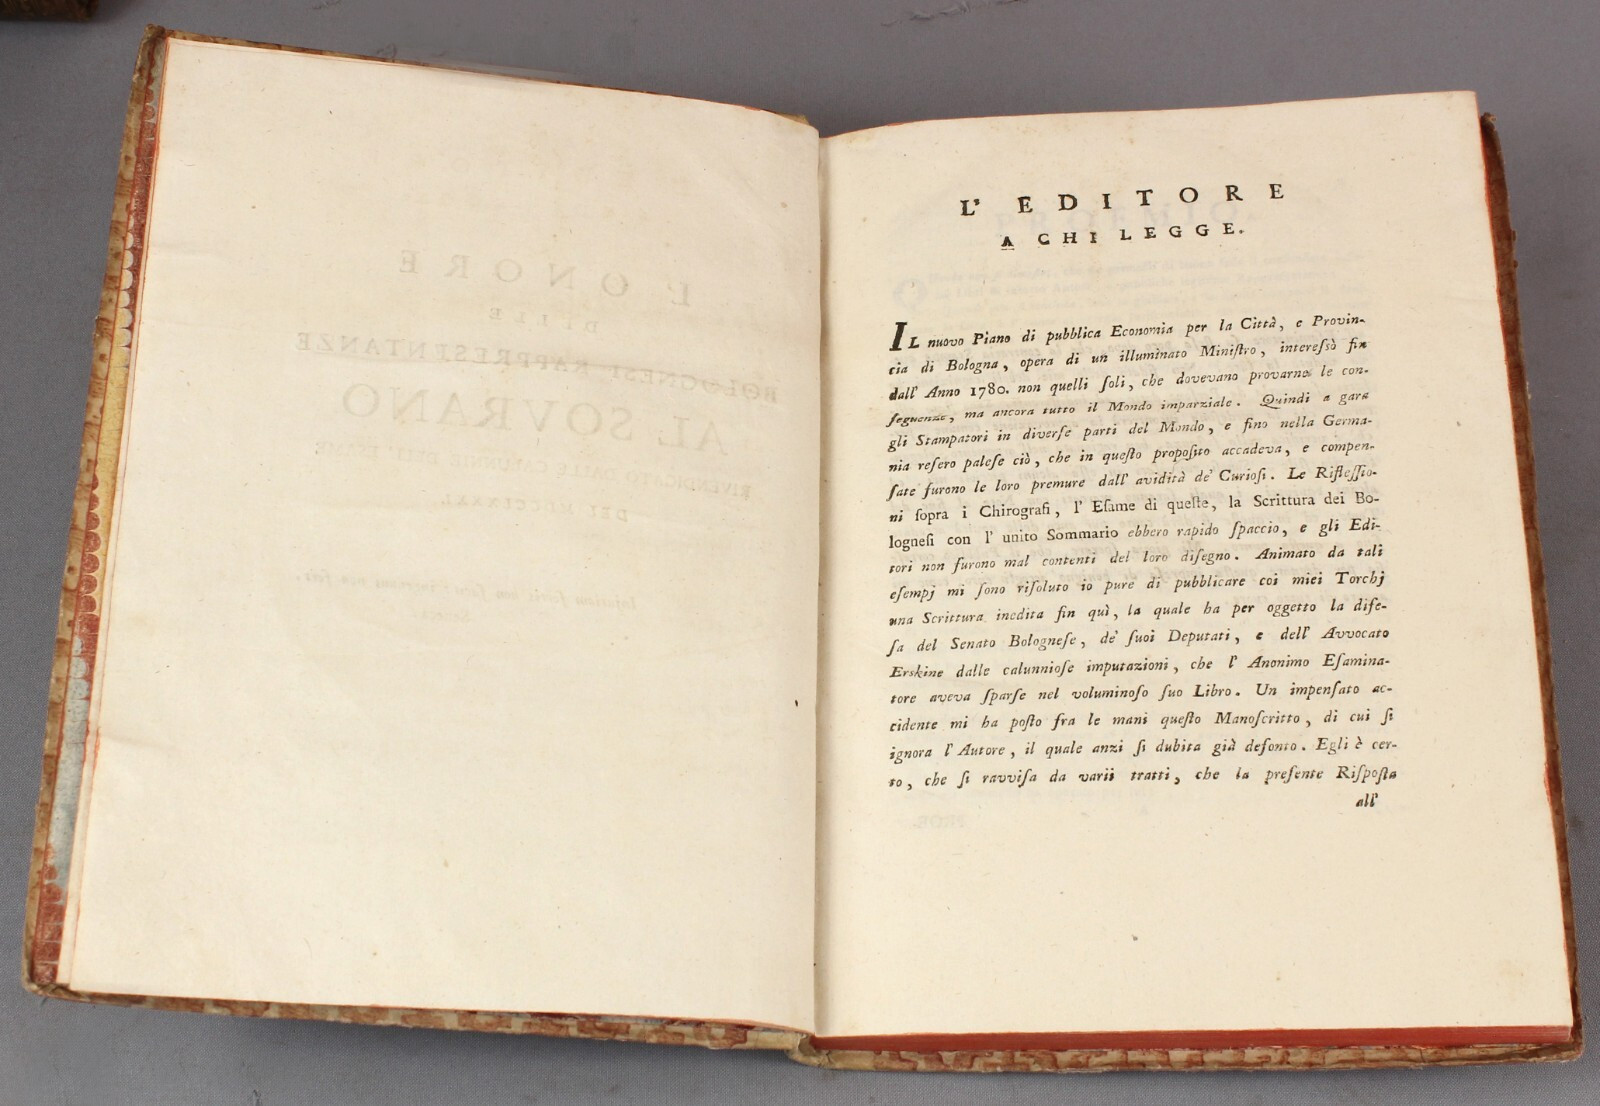 L' ONORE
DELLE
BOLOGNESI RAPPRESENTANZE
AL SOVRANO
RIVENDICATO DALLE CALUNNIE DELL' ESAME
DEL MDCCLXXXI.
SENECA
L' EDITORE
A CHI LEGGE.
IL nuovo Piano di pubblica Economia per la Città, e Provin-
cia di Bologna, opera di un illuminato Miniſtro, intereſsò fin
dall' Anno 1780. non quelli ſoli, che dovevano provarne le con-
ſeguenze, ma ancora tutto il Mondo imparziale. Quindi a gara
gli Stampatori in diverſe parti del Mondo, e fino nella Germa-
nia reſero paleſe ciò, che in queſto propoſito accadeva, e compen-
ſate furono le loro premure dall' avidità de' Curioſi. Le Rifleſſio-
ni ſopra i Chirografi, l' Eſame di queſte, la Scrittura dei Bo-
logneſi con l' unito Sommario ebbero rapido ſpaccio, e gli Edi-
tori non furono mal contenti del loro diſegno. Animato da tali
eſempj mi ſono riſoluto io pure di pubblicare coi miei Torchj
una Scrittura inedita fin quì, la quale ha per oggetto la dife-
ſa del Senato Bologneſe, de' ſuoi Deputati, e dell' Avvocato
Erskine dalle calunnioſe imputazioni, che l' Anonimo Eſamina-
tore aveva ſparſe nel voluminoſo ſuo Libro. Un impenſato ac-
cidente mi ha poſto fra le mani queſto Manoſcritto, di cui ſi
ignora l' Autore, il quale anzi ſi dubita già defonto. Egli è cer-
to, che ſi ravviſa da varii tratti, che la preſente Riſpoſta
all'